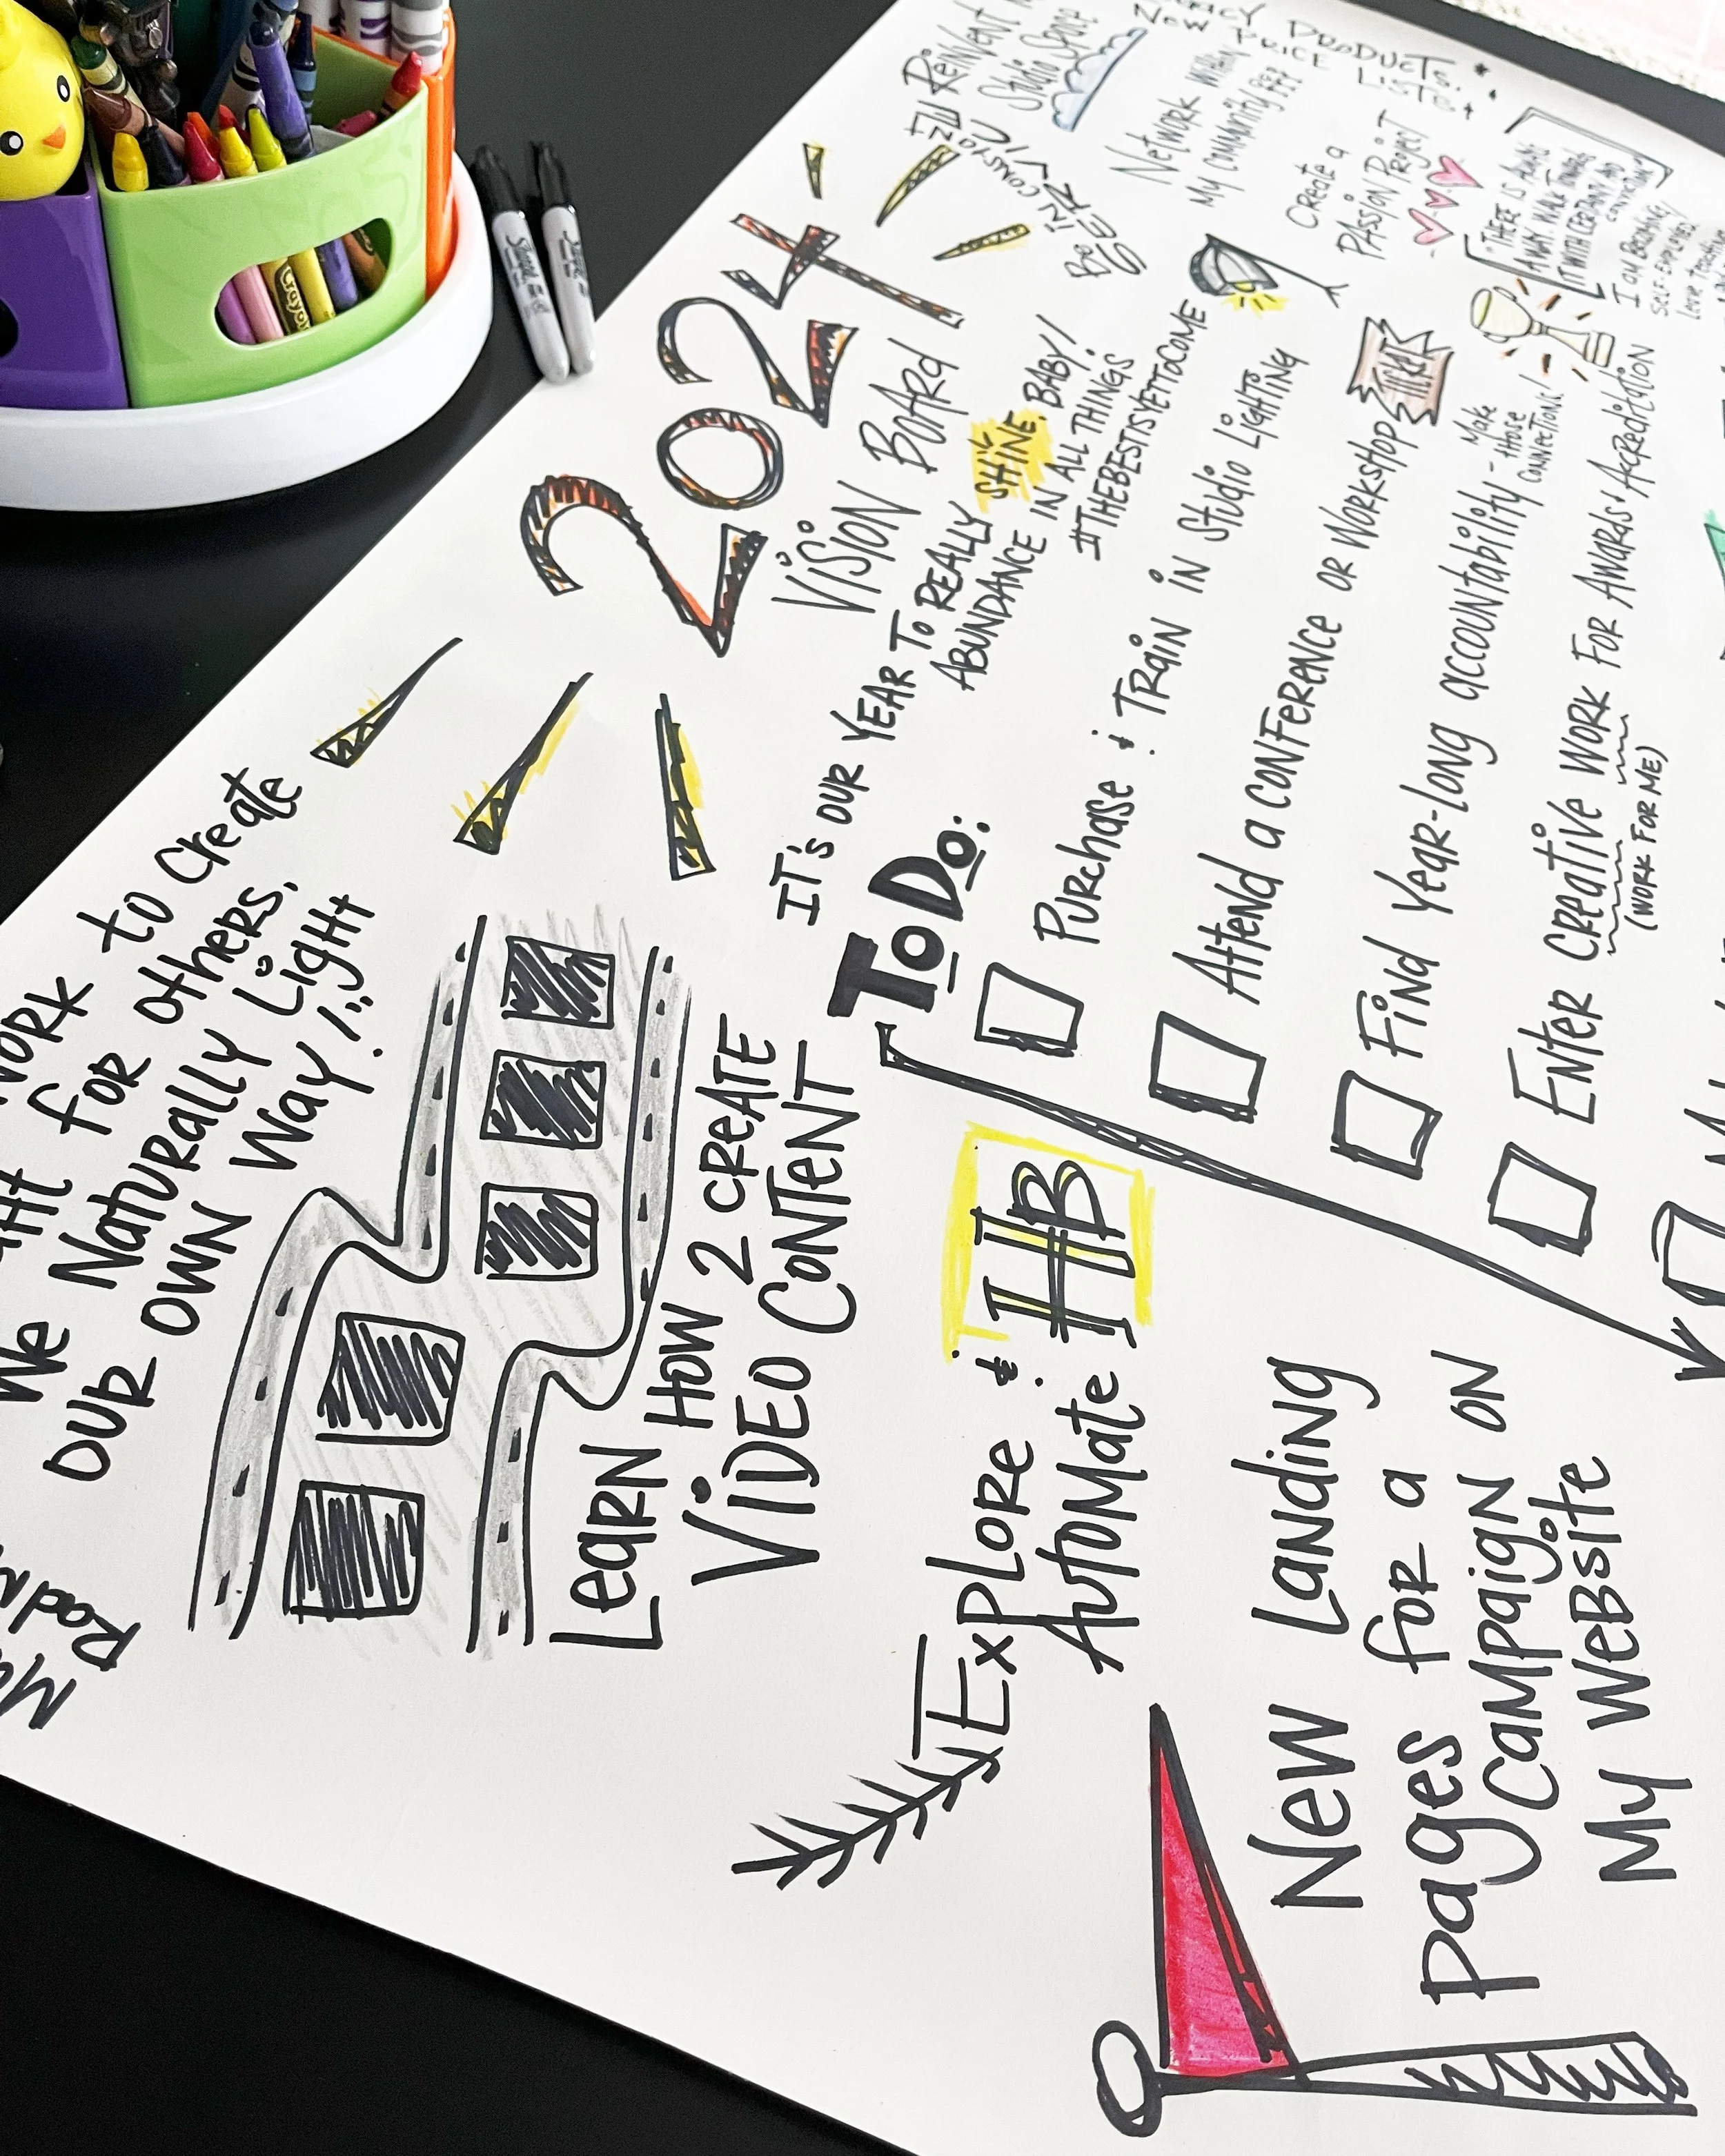 2024
VISION BOARD
IT'S OUR YEAR TO REALLY SHINE, BABY!
ABUNDANCE IN ALL THINGS
#THEBESTISYETTOCOME
TO DO:
Purchase & Train in Studio Lighting
Attend a Conference or Workshop
TICKET
Find Year-Long accountability - Make
those
connections!
Enter Creative Work For Awards & Accreditation
(Work for me)
work to create
for others.
We Naturally Light
our own way!
Learn How 2 Create
Video Content
Explore &
Automate HB
New Landing
pages for a
Campaign on
My Website
Reinvent
Studio Space
Network within
My Community
Create a
Passion Project
Products
New Price List
"There is always
a way. Walk
it with certainty and
conviction."
I am
self-employed
Love
Sharpie
Sharpie
Crayola